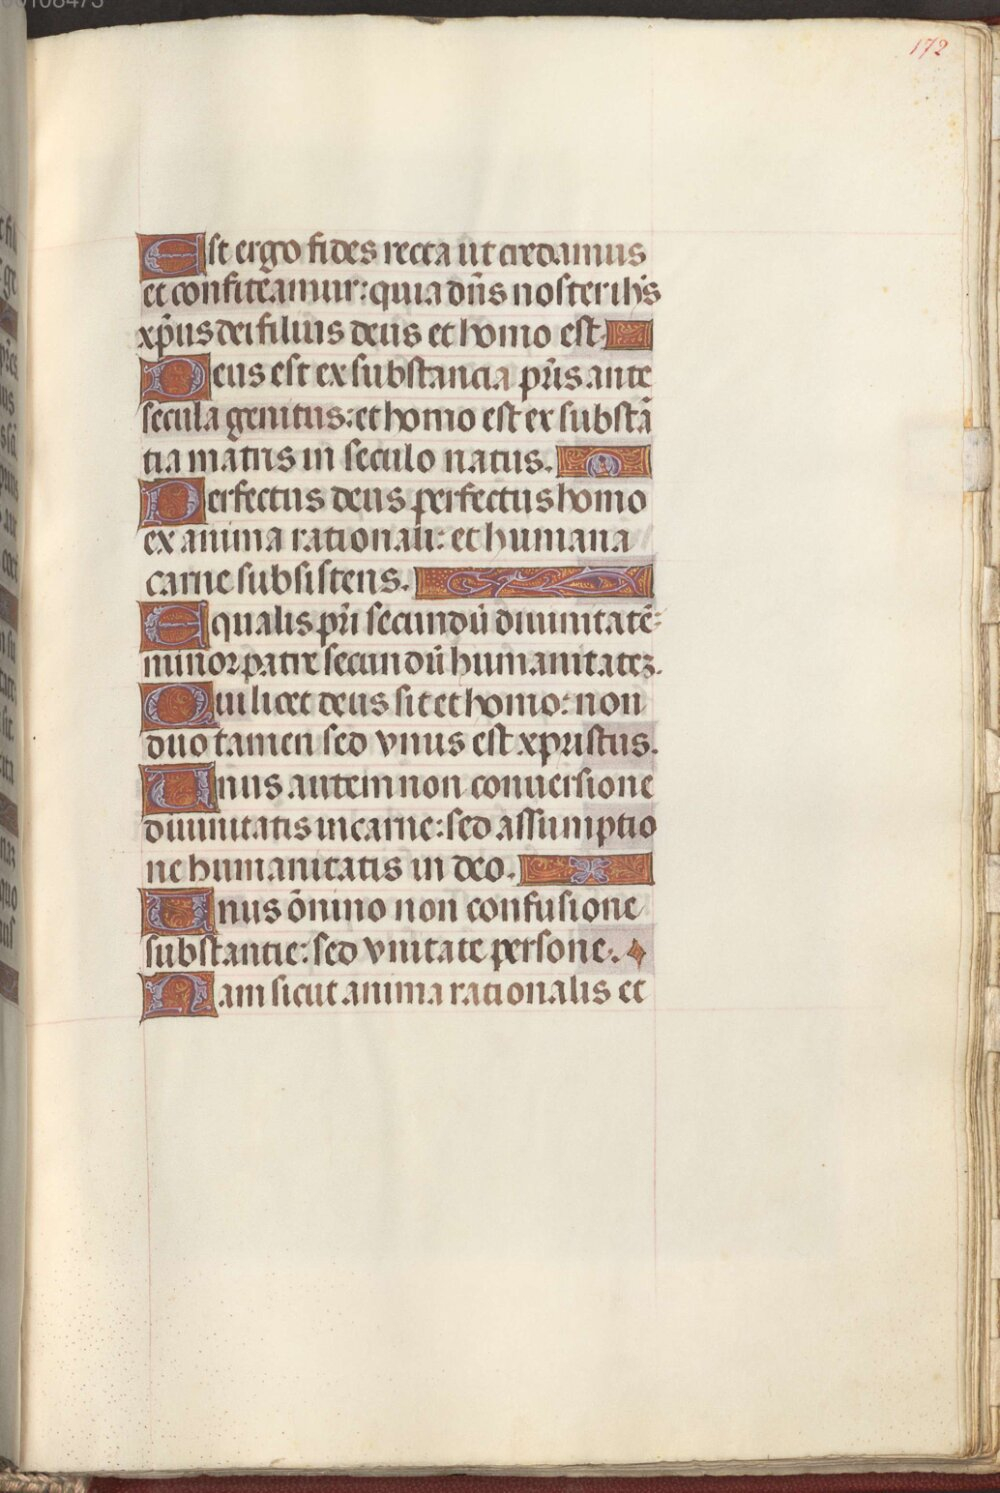 172
Est ergo fides recta ut credamus
et confiteamur: quia dn̄s noster ih̄s
xp̄us dei filius deus et homo est
Deus est ex substancia pr̄is ante
secula genitus: et homo est ex substā
tia matris in seculo natus.
Perfectus deus perfectus homo
ex anima rationali: et humana
carne subsistens.
Equalis pr̄i secundū diuinitatē:
minor patre secundū humanitatez.
Qui licet deus sit et homo: non
duo tamen sed vnus est xpristus.
Unus autem non conuersione
diuinitatis in carne: sed assumptio
ne humanitatis in deo.
Unus ōnino non confusione
substantie: sed vnitate persone.
Nam sicut anima rationalis et